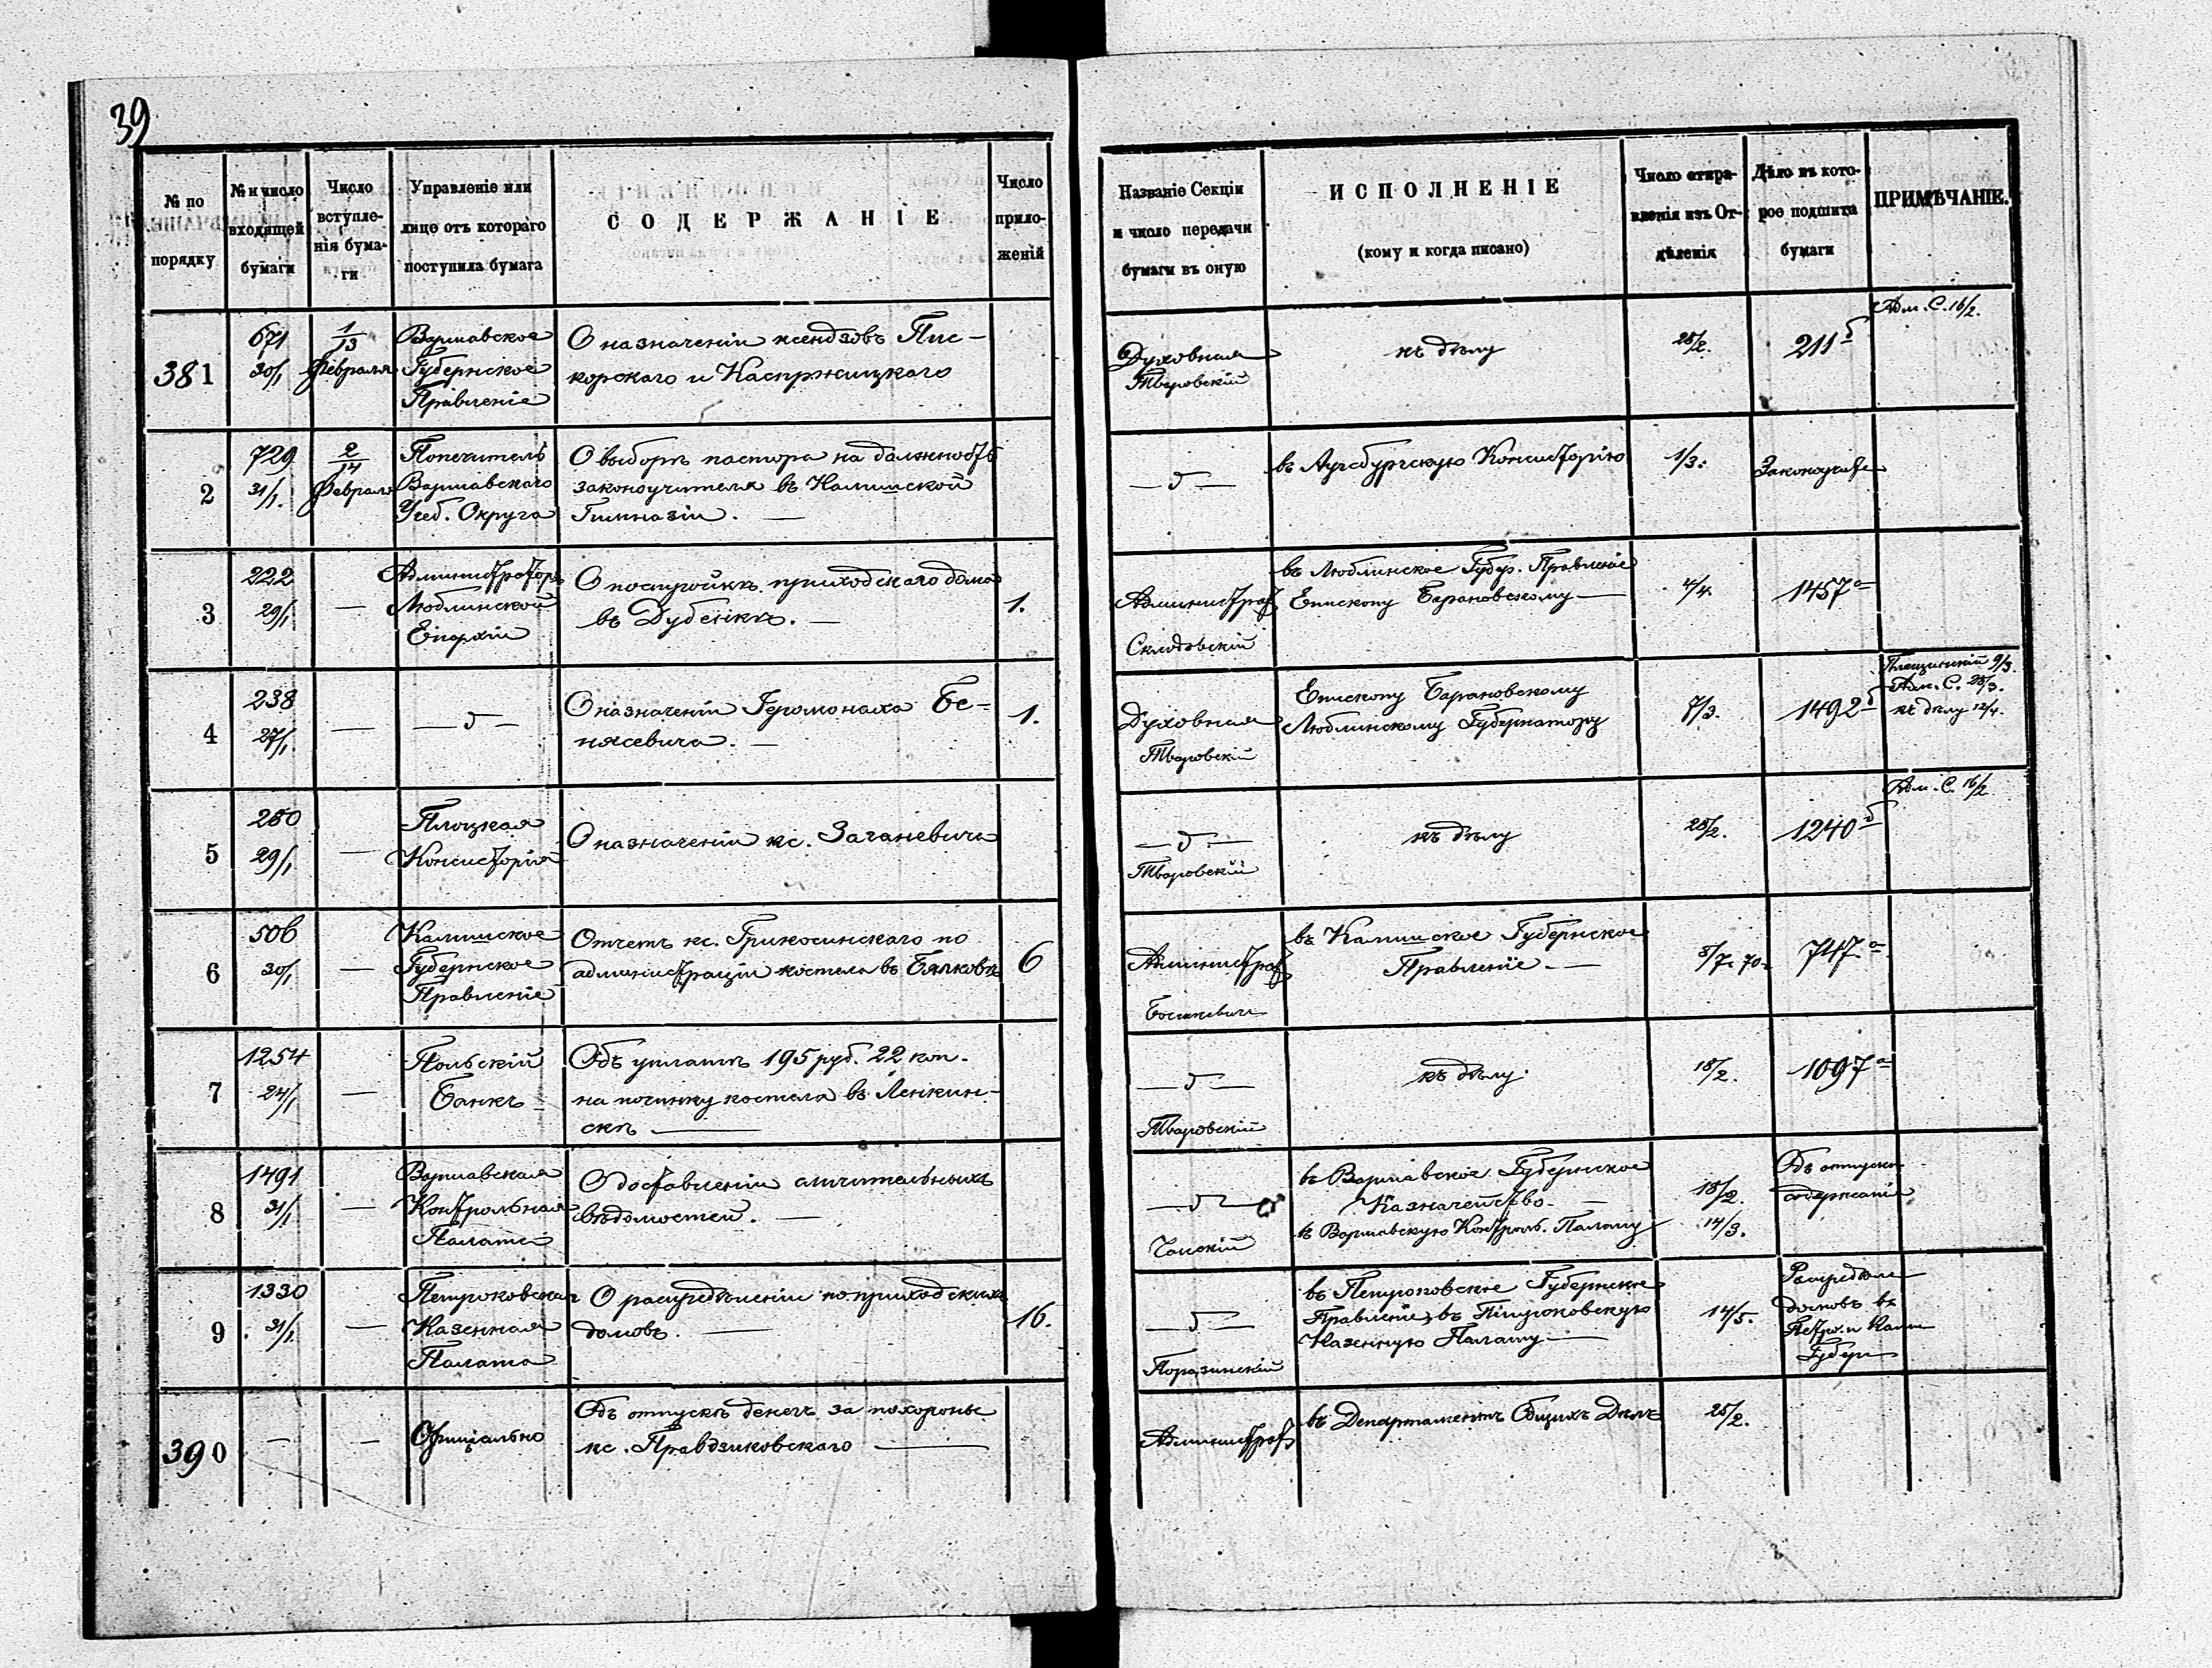 39
№ по порядку
№ и число входящей бумаги
Число вступле- нія бума- ги
Управленіе или лице отъ котораго поступила бумага
СОДЕРЖАНІЕ
Число прило- женій
Названіе Секціи и число передачи бумаги въ оную
ИСПОЛНЕНІЕ
(кому и когда писано)
Число отпра- вленія изъ От- дѣленія
Дѣло въ кото- рое подшита бумаги
ПРИМѢЧАНІЕ.
381
671
30/1
1/13
Февраля
Варшавское
Губернское
Правленіе
О назначеніи ксендзовъ Пис-
корскаго и Каспржицкаго
Духовная
Тваровскій
къ дѣлу
28/2.
211 б
Адм. С. 16/2.
2
729
31/1.
2/14
Февраля
Попечитель
Варшавскаго
Учеб. Округа
О выборѣ пастора на должность
законоучителя въ Калишской
Гимназіи. —
— „ —
въ Аугсбургскую Консисторію
1/3.
Законоучите
3
222
29/1
—
Администраторъ
Люблинской
Епархіи
О постройкѣ приходскаго дома
въ Дубенкѣ. —
1.
Администрат
Склодовскій
въ Люблинское Губер. Правленіе
Епископу Барановскому —
4/4.
1457 а
4
238
27/1
—
— „ —
О назначеніи Іеромонаха Бе-
нясевича. —
1.
Духовная
Тваровскій
Епископу Барановскому
Люблинскому Губернатору
7/3.
1492 б
9/3.
Адм. С. 28/3.
къ дѣлу 12/4.
5
280
29/1
—
Плоцкая
Консисторія
О назначеніи кс. Заганевича
— „ —
Тваровскій
къ дѣлу
28/2.
1240 б
Адм. С. 16/2
6
506
30/1
—
Калишское
Губернское
Правленіе
Отчетъ кс. Грикосинскаго по
администраціи костела въ Бялковѣ
6
Администрат
въ Калишское Губернское
Правленіе. —
8/7. 70.
747. а
7
1254
24/1
—
Польскій
Банкъ
Объ уплатѣ 195 руб. 22 коп.
на починку костела въ Ленкин-
скѣ —
— „ —
Тваровскій
къ дѣлу.
18/2.
1097 а
8
1491
31/1
—
Варшавская
Контрольная
Палата
О доставленіи отчительныхъ
вѣдомостей. —
— „ —
Чапскій
въ Варшавское Губернское
Казначейство. —
въ Варшавскую Контроль. Палату
18/2.
14/3.
Объ отпуске
содержанія
9
1330
31/1
—
Петроковская
Казенная
Палата
О распредѣленіи поприходскихъ
домовъ. —
16.
— „ —
Поразинскій
въ Петроковское Губернское
Правленіе, въ Петроковскую
Казенную Палату —
14/5.
Распредѣле
домовъ въ
Петро. и Кали
Губер
390
—
—
Официально
Объ отпускѣ денегъ за похороны
кс. Правдзиковскаго —
Администрат
въ Департаментъ Общихъ Дѣлъ
25/2.